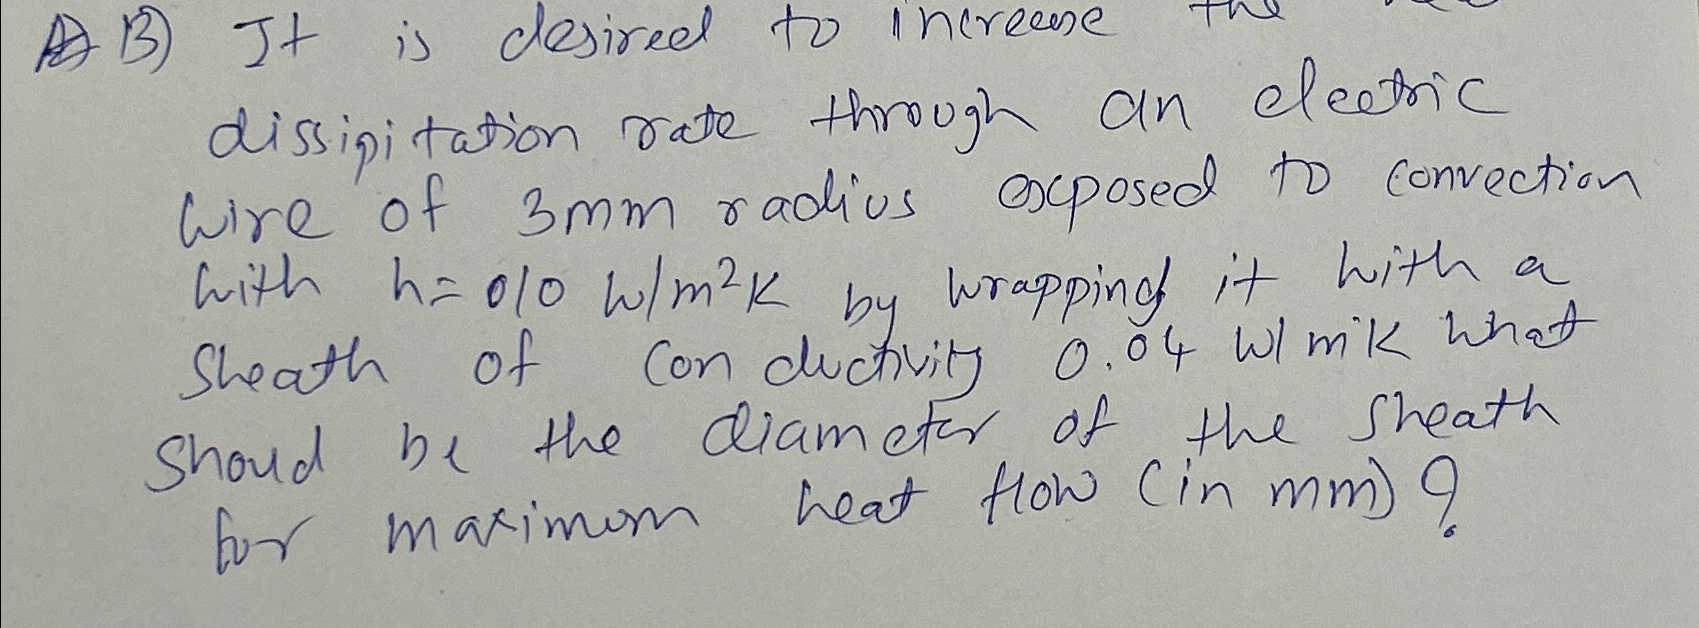 B) It is desired to increase the
dissipitation rate through an electric
wire of 3mm radius exposed to convection
with h= 010 W/m²K by wrapping it with a
sheath of conductivity 0.04 W/mK what
shoud be the diameter of the sheath
for maximum heat flow (in mm) ?